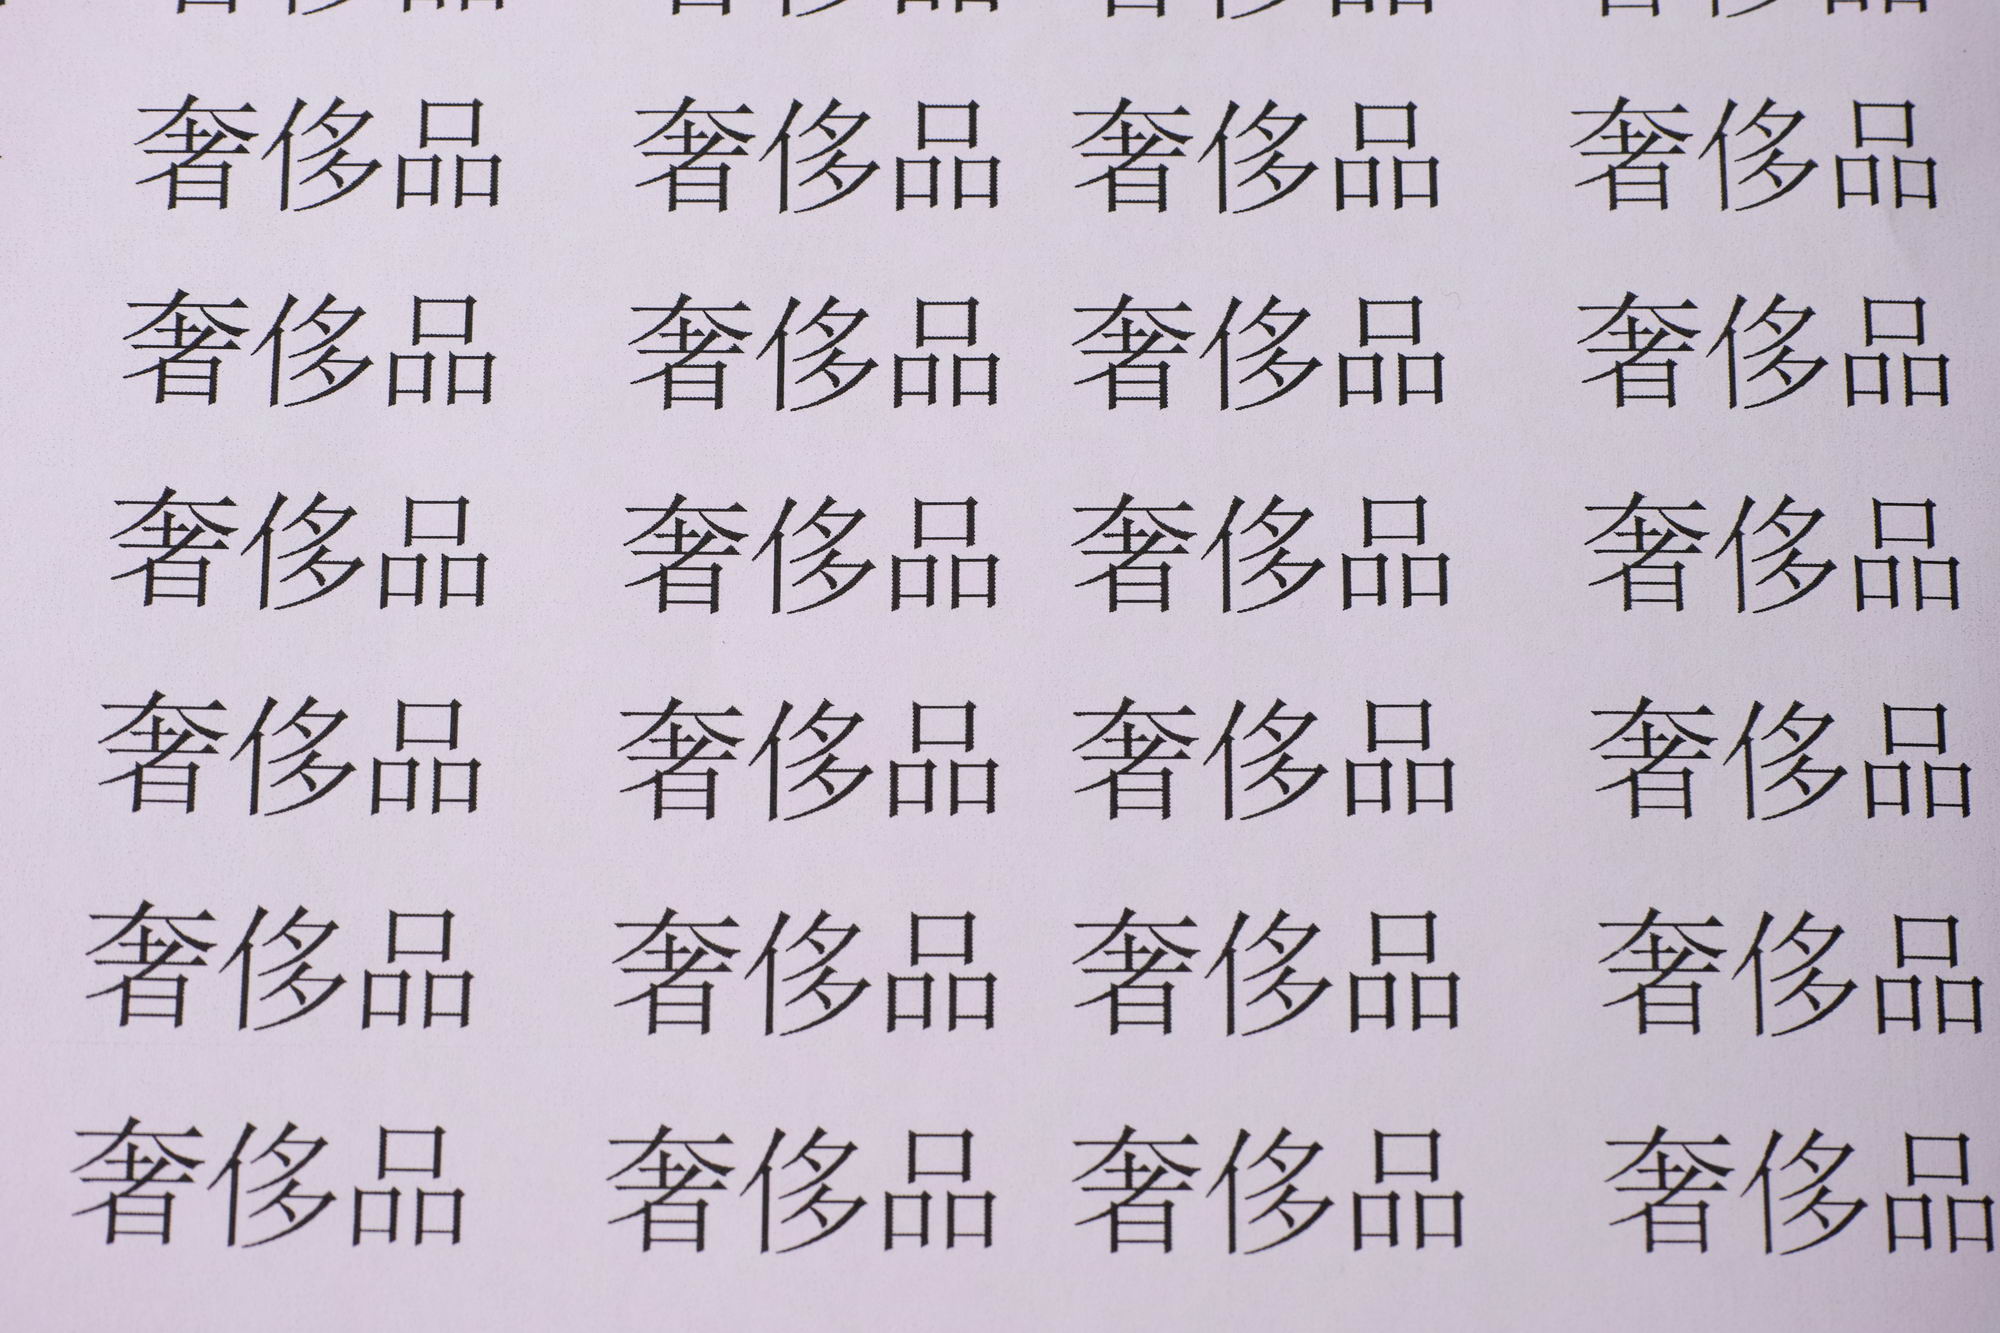 奢侈品 奢侈品 奢侈品 奢侈品
奢侈品 奢侈品 奢侈品 奢侈品
奢侈品 奢侈品 奢侈品 奢侈品
奢侈品 奢侈品 奢侈品 奢侈品
奢侈品 奢侈品 奢侈品 奢侈品
奢侈品 奢侈品 奢侈品 奢侈品